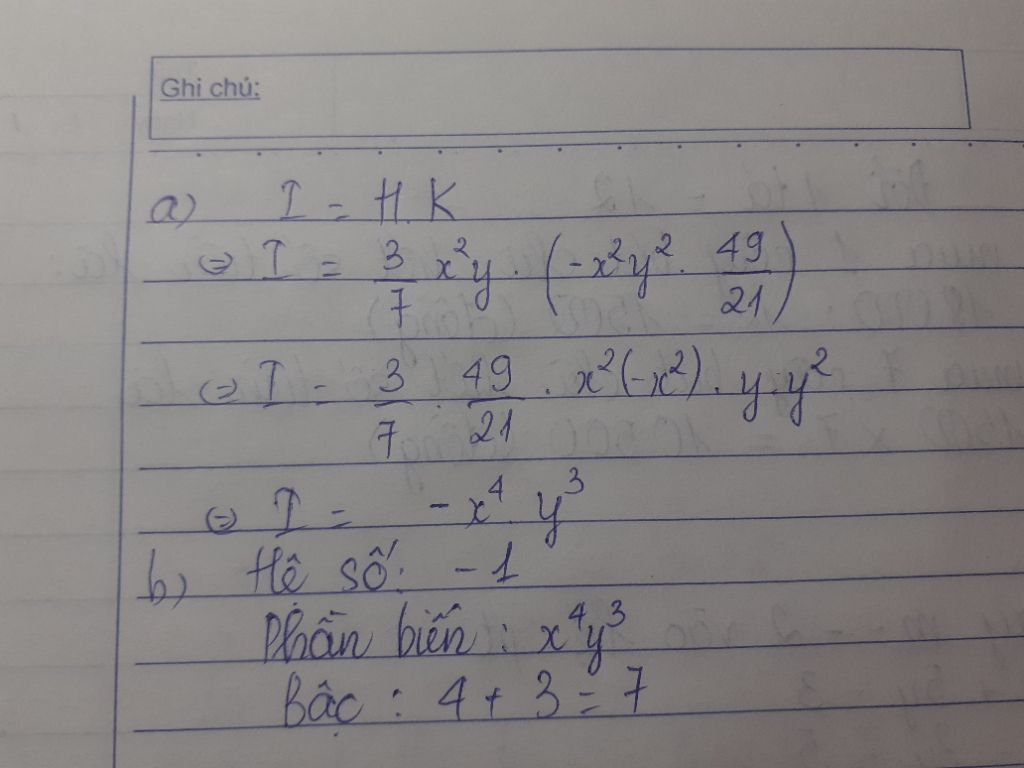 Ghi chú:
a) I = H.K
⇔ I = 3/7 x²y . (-x²y² . 49/21)
⇔ I = 3/7 . 49/21 . x²(-x²) . y.y²
⇔ I = -x⁴. y³
b) Hệ số: -1
Phần biến : x⁴y³
Bậc : 4 + 3 = 7